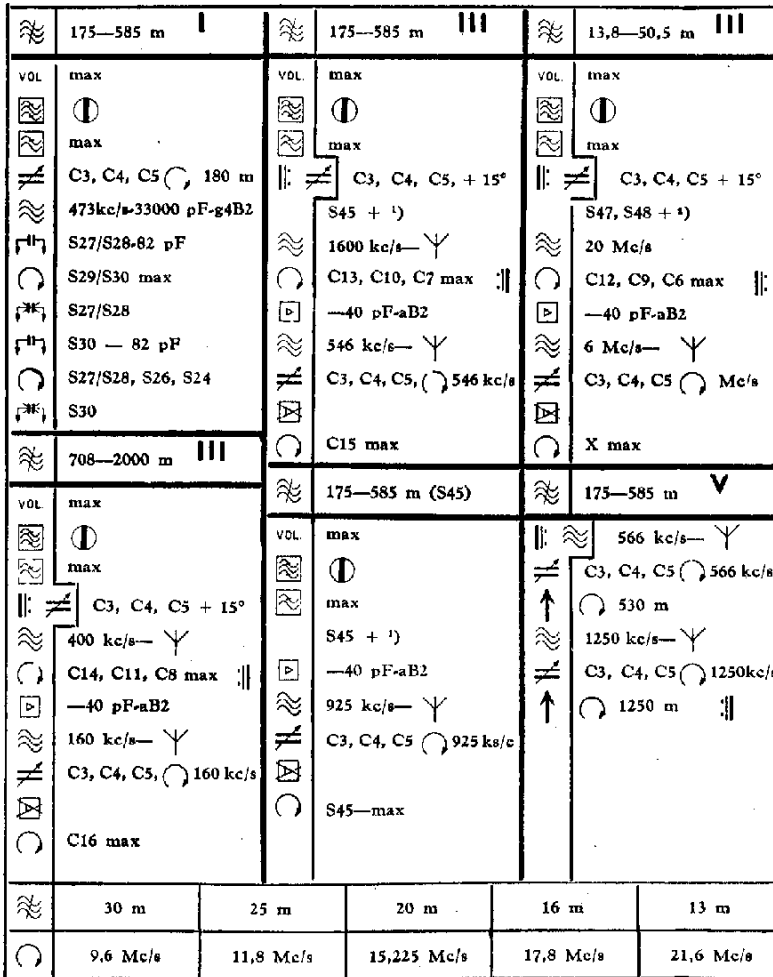 175—585 m I
VOL. max
max
C3, C4, C5 180 m
473kc/s-33000 pF-g4B2
S27/S28-82 pF
S29/S30 max
S27/S28
S30 — 82 pF
S27/S28, S26, S24
S30
708—2000 m III
VOL. max
max
C3, C4, C5 + 15°
400 kc/s—
C14, C11, C8 max
—40 pF-aB2
160 kc/s—
C3, C4, C5, 160 kc/s
C16 max
175—585 m III
VOL. max
max
C3, C4, C5, + 15°
S45 + ¹)
1600 kc/s—
C13, C10, C7 max
—40 pF-aB2
546 kc/s—
C3, C4, C5, 546 kc/s
C15 max
175—585 m (S45)
VOL. max
max
S45 + ¹)
—40 pF-aB2
925 kc/s—
C3, C4, C5 925 ks/c
S45—max
13,8—50,5 m III
VOL. max
max
C3, C4, C5 + 15°
S47, S48 + ²)
20 Mc/s
C12, C9, C6 max
—40 pF-aB2
6 Mc/s—
C3, C4, C5 Mc/s
X max
175—585 m V
566 kc/s—
C3, C4, C5 566 kc/s
530 m
1250 kc/s—
C3, C4, C5 1250kc/s
1250 m
30 m 25 m 20 m 16 m 13 m
9,6 Mc/s 11,8 Mc/s 15,225 Mc/s 17,8 Mc/s 21,6 Mc/s